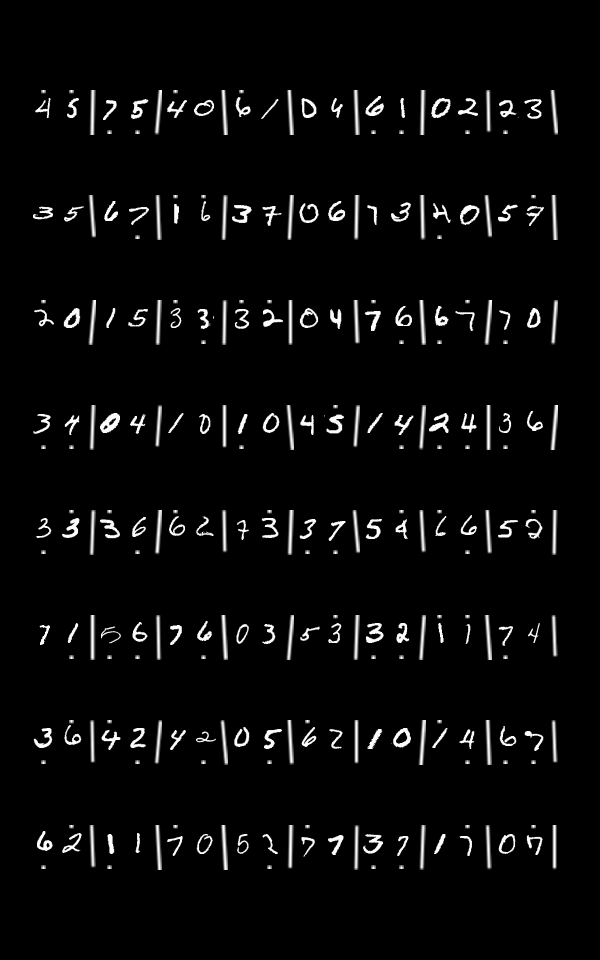 4̇ 5̇ | 7̣ 5̣ | 4̇ 0 | 6̇ 1 | 0 4 | 6̣ 1̣ | 0 2̣ | 2̣ 3 |
3 5 | 6 7̣ | 1̇ 6̇ | 3 7 | 0 6 | 7 3 | 4̣ 0 | 5 7̇ |
2̇ 0 | 1 5 | 3̇ 3̣ | 3̇ 2̇ | 0 4 | 7̇ 6̣ | 6̇ 7 | 7̣ 0 |
3̣ 4̣ | 0 4 | 1 0 | 1̣ 0 | 4 5̇ | 1 4̣ | 2̣ 4̣ | 3̣ 6 |
3̣ 3̇ | 3̇ 6̣ | 6̇ 2 | 7 3̇ | 3̣ 7̣ | 5 4̇ | 6̇ 6̣ | 5 2̇ |
7 1̣ | 5̣ 6̣ | 7 6̣ | 0 3 | 5 3̇ | 3̣ 2̣ | 1̇ 1̇ | 7̣ 4 |
3̣ 6̇ | 4̇ 2̣ | 4 2̣ | 0 5̣ | 6̇ 2 | 1 0 | 1̇ 4̣ | 6̣ 7̣ |
6̣ 2̇ | 1̣ 1 | 7̇ 0 | 5 2̣ | 7̇ 7 | 3̣ 7̣ | 1 7̇ | 0 7̇ |